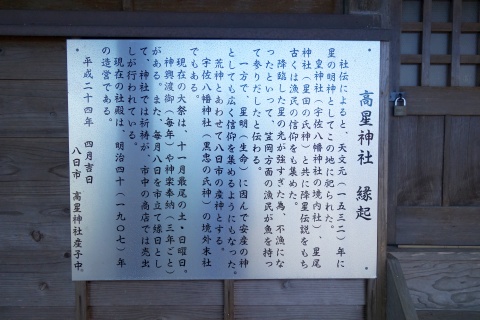 高星神社 縁起
社伝によると、天文元(一五三二)年に
星の明神としてこの地に祀られた。
皇神社(宇佐八幡神社の境内社)、星尾
神社(星田の氏神)と共に降星伝説をもち
古くは漁民の信仰をも集めた。
降臨した星の光が強すぎた為、不漁にな
ったといって、笠岡方面の漁民が魚を持っ
て参りだしたと伝わる。
一方で、星明(生命)に因んで安産の神
としても広く信仰を集めるようにもなった。
荒神とあわせて八日市の産神とする。
宇佐八幡神社(黒忠の氏神)の境外末社
でもある。
現在の大祭は、十一月最尾の土・日曜日。
神輿渡御(毎年)や神楽奉納(三年ごと)
がある。また、毎月八日を市立て縁日とし
て、神社では祈祷が、市中の商店では売出
しが行われている。
現在の社殿は、明治四十(一九〇七)年
の造営である。
平成二十四年 四月吉日
八日市 高星神社産子中